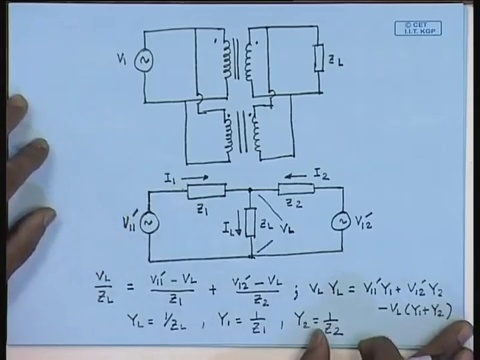 © CET
I.I.T. KGP
V₁
Z_L
I₁
I₂
Z₁
Z₂
V₁₁′
I_L
Z_L
V_L
V₁₂′
V_L/Z_L = (V₁₁′ − V_L)/Z₁ + (V₁₂′ − V_L)/Z₂ ; V_L Y_L = V₁₁′Y₁ + V₁₂′Y₂
− V_L (Y₁+Y₂)
Y_L = 1/Z_L , Y₁ = 1/Z₁ , Y₂ = 1/Z₂